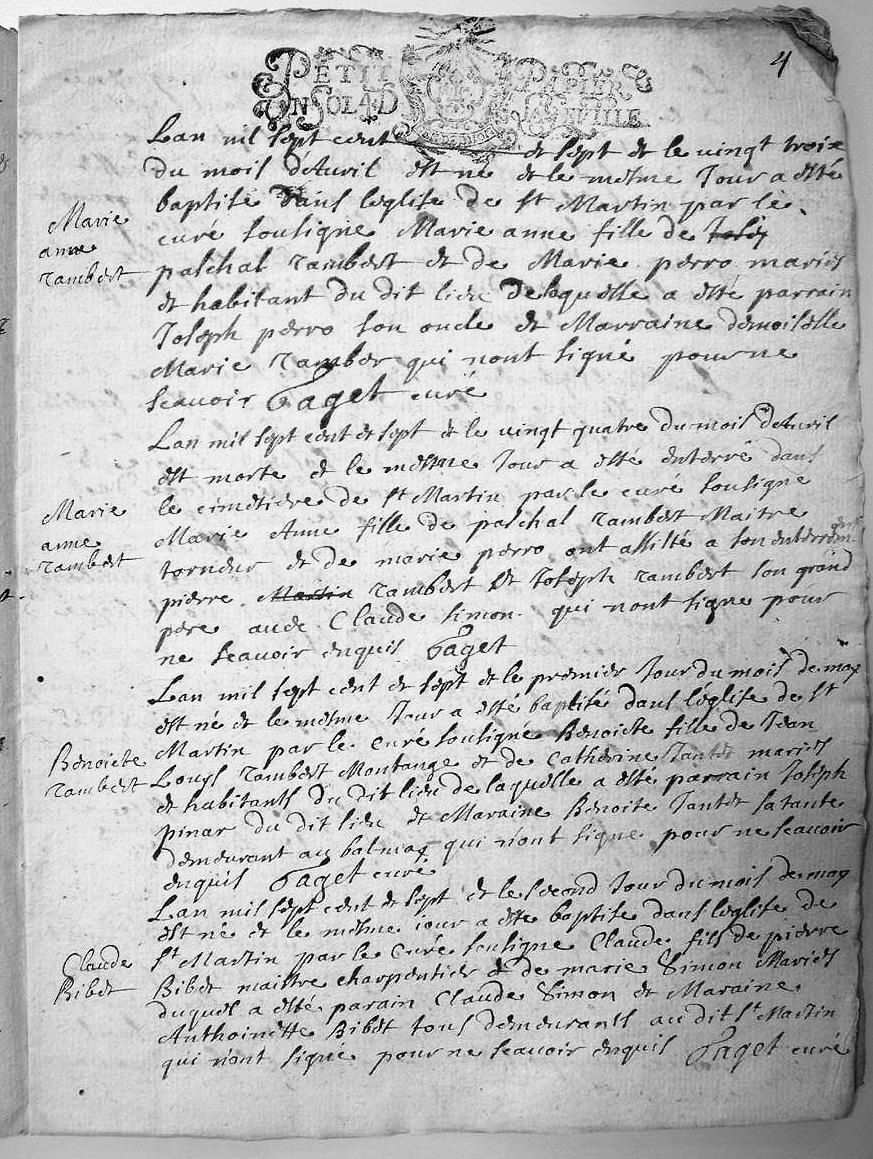 4
PETIT PAPIER
UN SOL 4 D LA FEUILLE
Lan mil sept cent et sept et le vingt trois
du mois dAuril est ne et le mesme Jour a esté
baptisé dans leglise de St Martin par le
curé sousigne Marie anne fille de Josep
paschal rambert et de Marie perro mariés
et habitant du dit lieu de laquelle a esté parrain
Joseph perro son oncle et Marraine demoiselle
Marie ramber qui nont signé pour ne
scauoir Paget curé
Marie
anne
rambert
Lan mil sept cent et sept et le vingt quatre du mois dAuril
est morte et le mesme Jour a esté enterré dans
le cimetiere de St Martin par le curé sousigne
Marie Anne fille de paschal rambert Maitre
torneur et de marie perro ont assisté a son enterrem
pierre Martin rambert et Joseph rambert son grand
pere auec Claude simon qui nont signe pour
ne scauoir enquis Paget
Marie
anne
rambert
Lan mil sept cent et sept et le premier Jour du mois de may
est né et le mesme Jour a esté baptisé dans leglise de St
Martin par le curé sousigné Benoicte fille de Jean
Louys rambert Montange et de Catherine Tantet mariés
et habitants du dit lieu de laquelle a esté parrain Joseph
pinar du dit lieu et Maraine Benoite Tantet sa tante
demeurant au balmay qui n'ont signe pour ne scauoir
enquis Paget curé
Benoicte
rambert
Lan mil sept cent et sept et le second Jour du mois de may
est né et le mesme iour a este baptise dans leglise de
St Martin par le curé sousigne Claude fils de pierre
Bibet maistre charpentier et de marie Simon Mariés
duquel a esté parain Claude Simon et Maraine
Anthoinette Bibet tous demeurants au dit St Martin
qui n'ont signé pour ne scauoir enquis Paget curé
Claude
Bibet